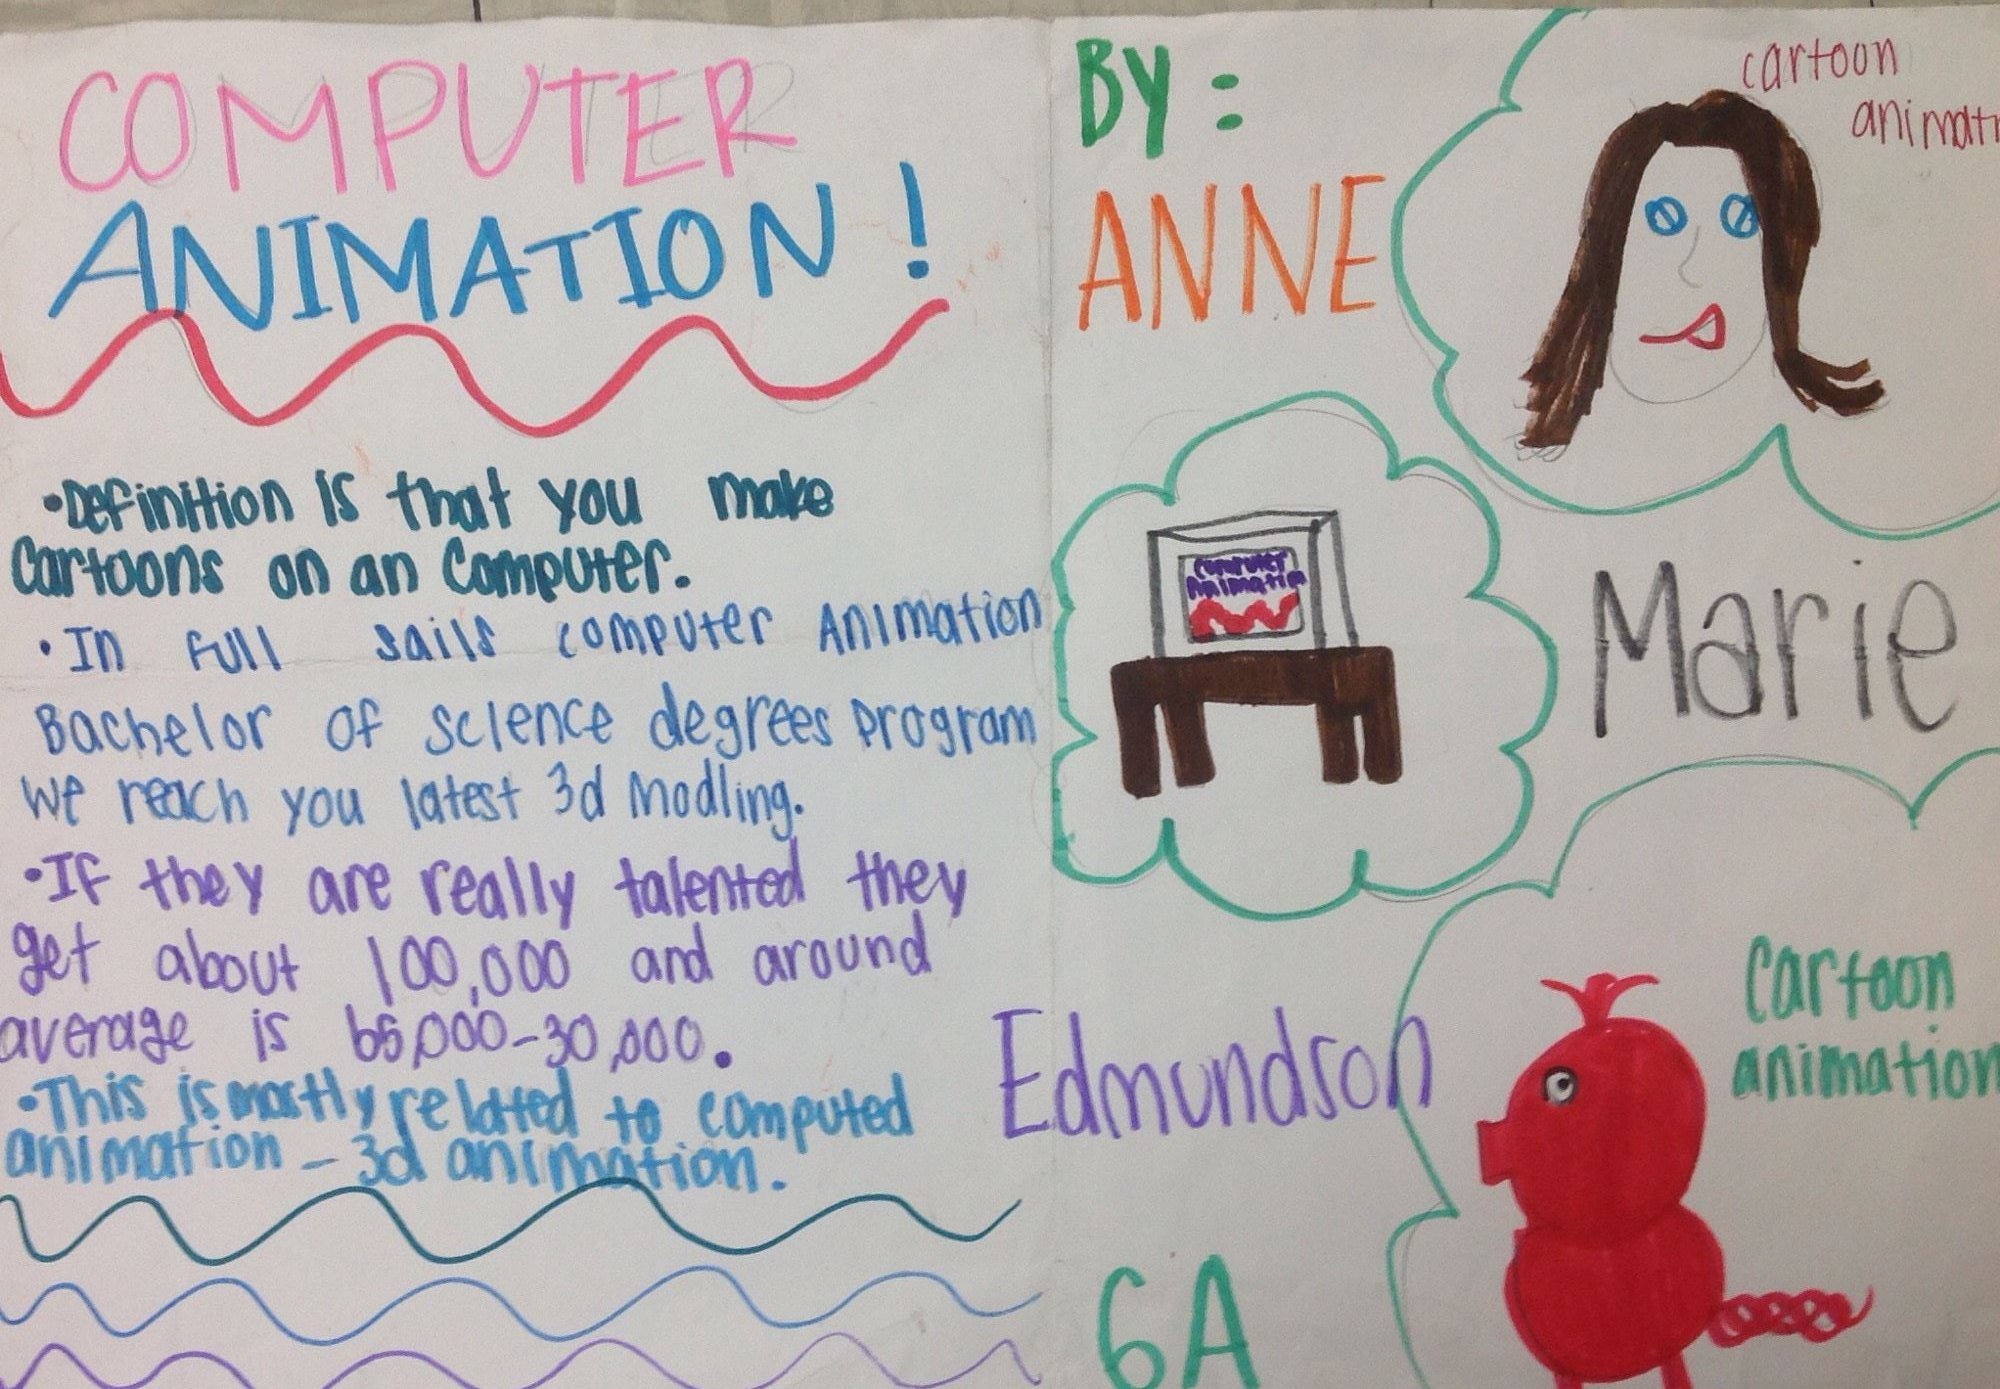 COMPUTER
ANIMATION!
•Definition is that you make
Cartoons on an Computer.
•In Full sails computer Animation
Bachelor of science degrees program
We reach you latest 3d Modling.
•If they are really talented they
get about 100,000 and around
average is 65,000-30,000.
•This is mostly related to computed
animation - 3d animation.
BY:
ANNE
Marie
Edmundson
6A
cartoon
Computer
Animation
Cartoon
animation